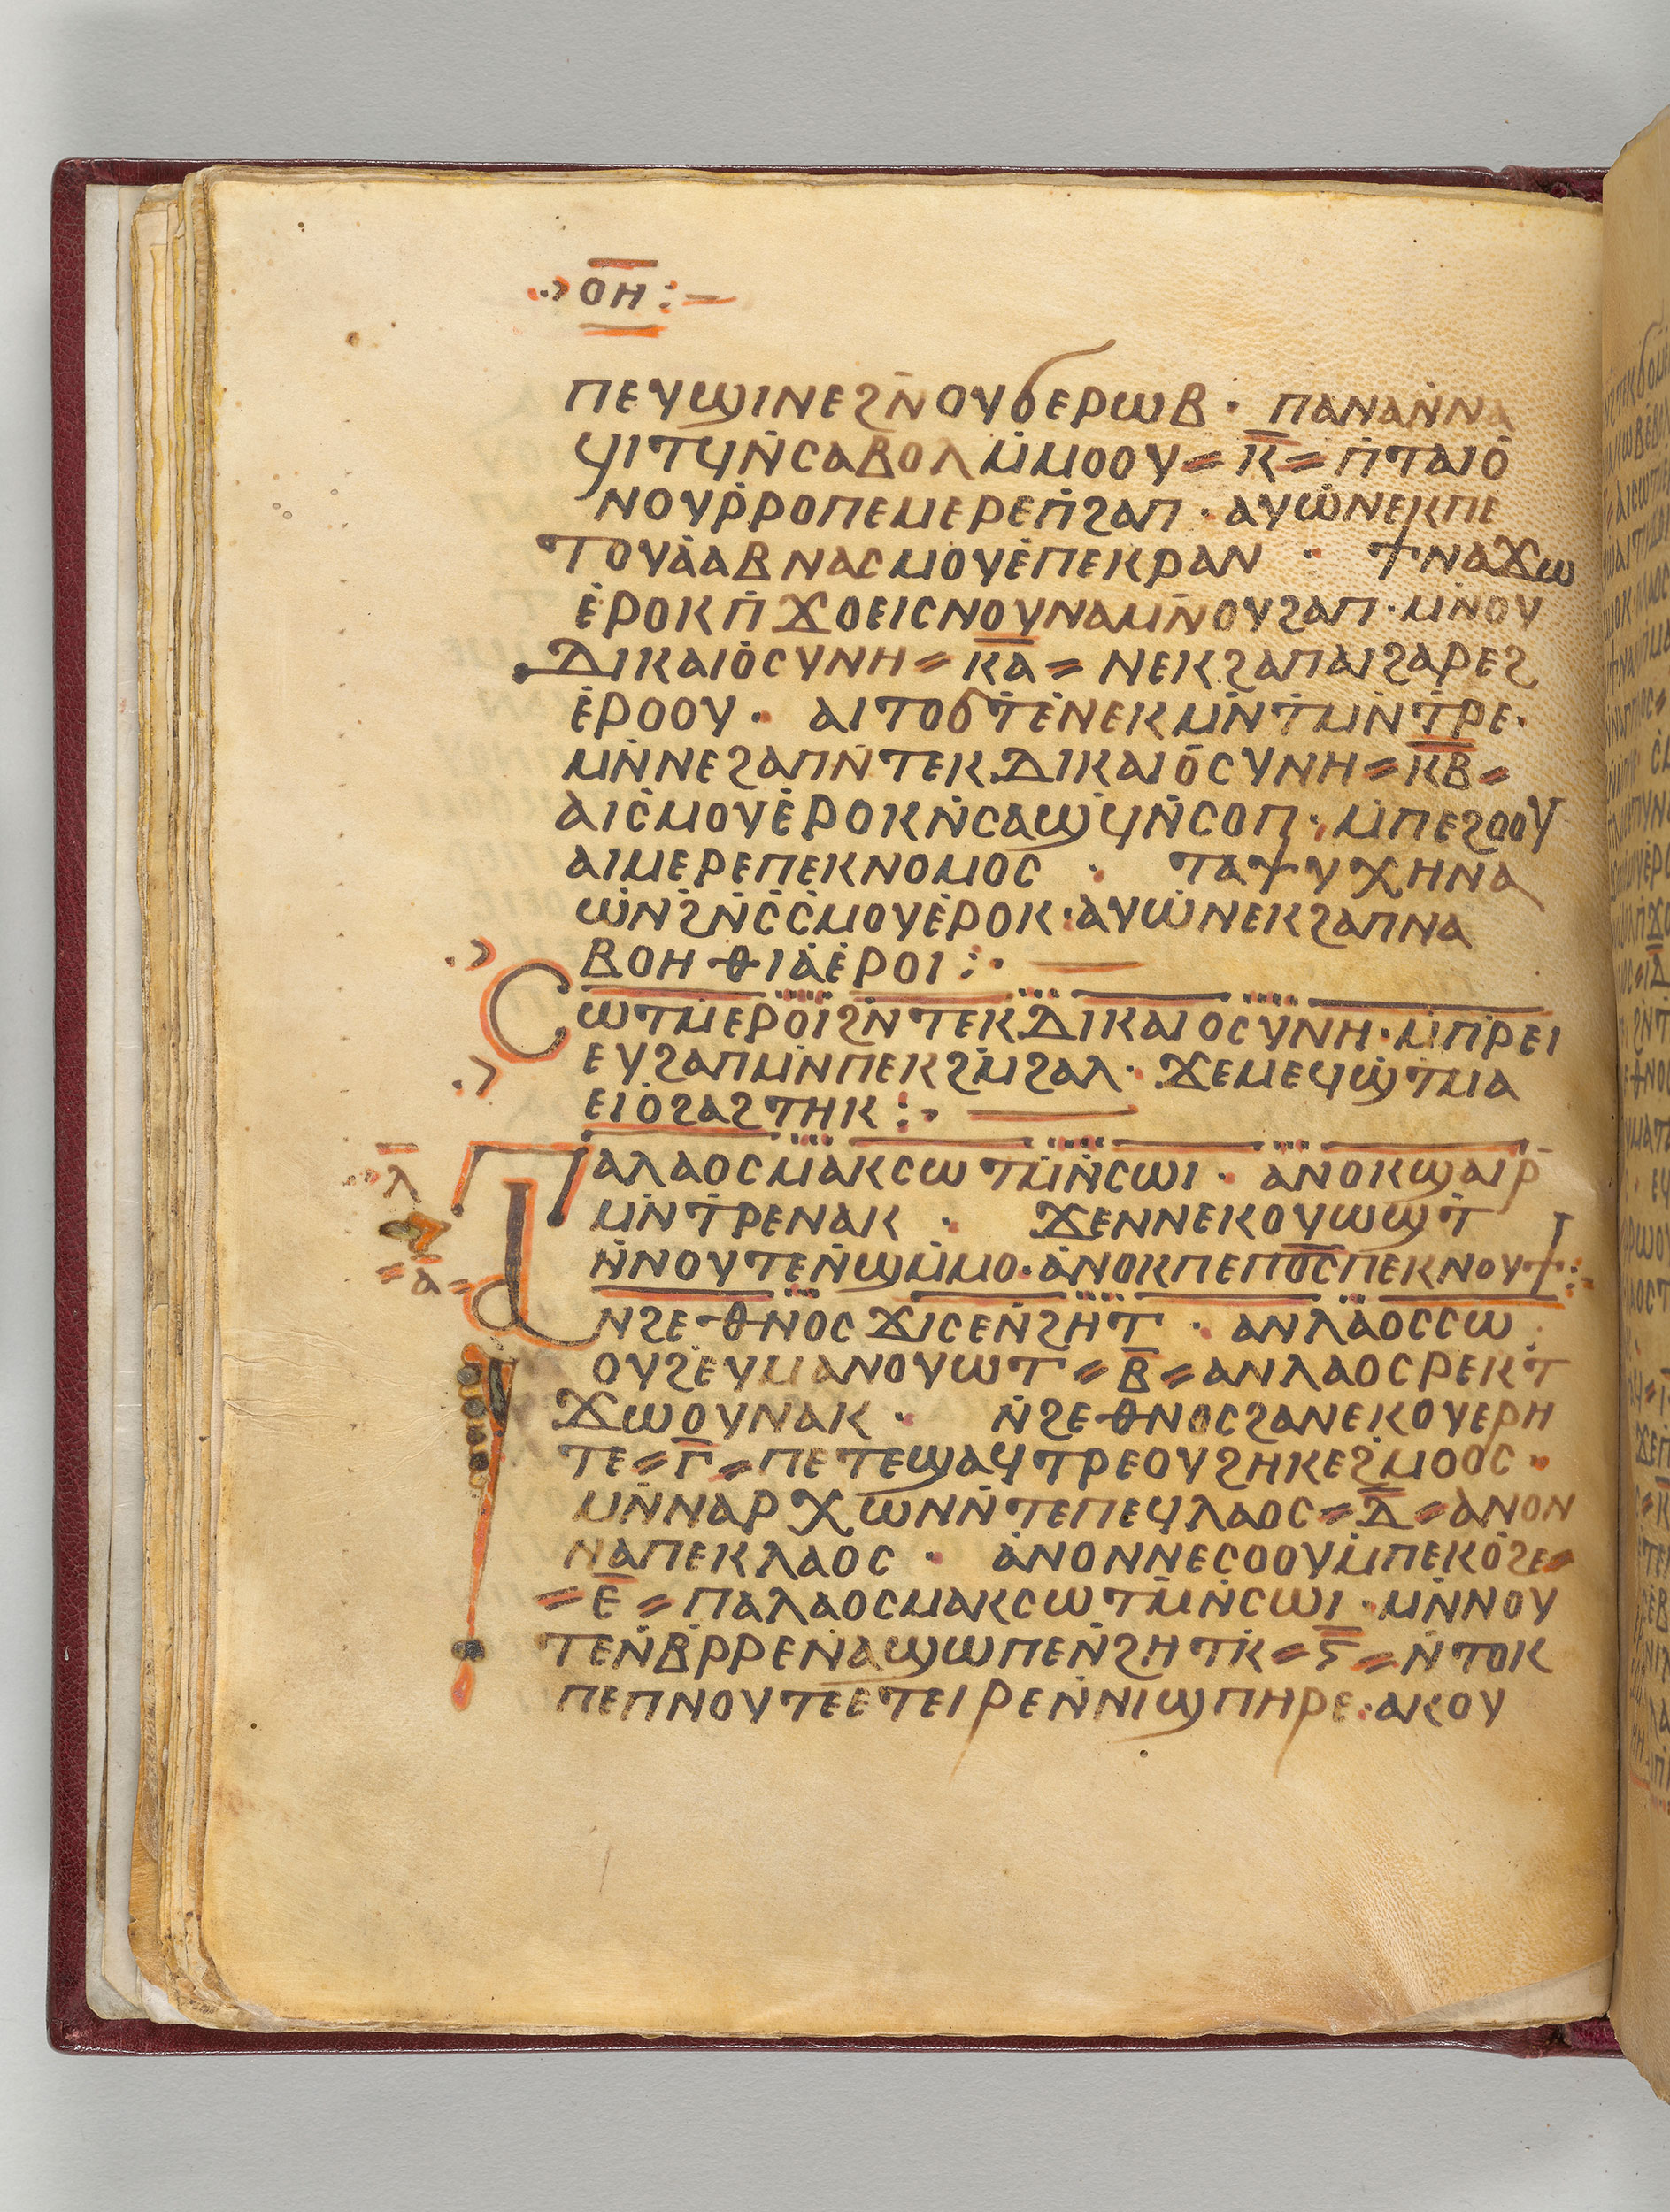 ⲟⲏ:–
ⲡⲉⲩϣⲓⲛⲉϩⲛ̄ⲟⲩϭⲉⲣⲱⲃ · ⲡⲁⲛⲁⲛ̇ⲛⲁ
ϥⲓⲧϥⲛ̇ⲥⲁⲃⲟⲗⲙ̇ⲙⲟⲟⲩ = ⲕ̅ = ⲡ̇ⲧⲁⲓⲟ̇
ⲛⲟⲩⲣ̇ⲣⲟⲡⲉⲙⲉⲣⲉⲡ̇ϩⲁⲡ · ⲁⲩⲱ̇ⲛⲉⲕⲡⲉ
ⲧⲟⲩⲁ̇ⲁⲃⲛⲁⲥⲙⲟⲩⲉ̇ⲡⲉⲕⲣⲁⲛ · ϯⲛⲁϫⲱ
ⲉ̇ⲣⲟⲕⲡ̇ϫⲟⲉⲓⲥⲛⲟⲩⲛⲁⲙⲛ̇ⲟⲩϩⲁⲡ · ⲙⲛ̇ⲟⲩ
ⲇⲓⲕⲁⲓⲟ̇ⲥⲩⲛⲏ = ⲕ̅ⲁ̅ = ⲛⲉⲕϩⲁⲡⲁⲓϩⲁⲣⲉϩ
ⲉ̇ⲣⲟⲟⲩ · ⲁⲓⲧⲟϭⲧ̇ⲉ̇ⲛⲉⲕⲙⲛ̇ⲧⲙⲛ̇ⲧ̇ⲣⲉ ·
ⲙⲛ̇ⲛⲉϩⲁⲡⲛ̇ⲧⲉⲕⲇⲓⲕⲁⲓⲟ̇ⲥⲩⲛⲏ = ⲕ̅ⲃ̅ =
ⲁⲓⲥ̇ⲙⲟⲩⲉ̇ⲣⲟⲕⲛ̇ⲥⲁϣϥ̇ⲛ̇ⲥⲟⲡ · ⲙ̇ⲡⲉϩⲟⲟⲩ
ⲁⲓⲙⲉⲣⲉⲡⲉⲕⲛⲟⲙⲟⲥ · ⲧⲁⲯⲩⲭⲏⲛⲁ
ⲱ̇ⲛϩ̇ⲛ̇ⲥ̇ⲥ̇ⲙⲟⲩⲉ̇ⲣⲟⲕ · ⲁⲩⲱ̇ⲛⲉⲕϩⲁⲡⲛⲁ
ⲃⲟⲏⲑⲓⲁ̇ⲉ̇ⲣⲟⲓ :· —
Ⲥⲱⲧⲙⲉⲣⲟⲓϩⲛ̇ⲧⲉⲕⲇⲓⲕⲁⲓⲟⲥⲩⲛⲏ · ⲙ̇ⲡⲣ̇ⲉⲓ
ⲉⲩϩⲁⲡⲙⲛ̇ⲡⲉⲕϩⲙ̇ϩⲁⲗ · ϫⲉⲙⲉϥϣ̇ⲧⲙⲁ
ⲉⲓⲟ̇ϩⲁϩⲧⲏⲕ :· —
Ⲡⲁⲗⲁⲟⲥⲙⲁⲕⲥⲱⲧⲙ̇ⲛ̇ⲥⲱⲓ · ⲁ̇ⲛⲟⲕϣⲁⲓⲣ̇
ⲗ̅
ⲙⲛ̇ⲧ̇ⲣⲉⲛⲁⲕ · ϫⲉⲛⲛⲉⲕⲟⲩⲱϣ̇ⲧ
ⲛ̇ⲛⲟⲩⲧⲉⲛ̇ϣⲙ̇ⲙⲟ · ⲁ̇ⲛⲟⲕⲡⲉⲡⲟ̅ⲥ̅ⲡⲉⲕⲛⲟⲩϯ :-
= ⲁ̅ =
Ⲁⲛϩⲉⲑⲛ̇ⲟⲥϫⲓⲥⲉⲛ̇ϩⲏⲧ · ⲁⲛⲗⲁ̇ⲟⲥⲥⲱ
ⲟⲩϩ̇ⲉⲩⲙⲁⲛⲟⲩⲱⲧ = ⲃ̅ = ⲁⲛⲗⲁⲟⲥⲣⲉⲕⲧ
ϫⲱⲟⲩⲛⲁⲕ · ⲛ̇ϩⲉⲑⲛⲟⲥϩⲁⲛⲉⲕⲟⲩⲉⲣⲏ
ⲧⲉ = ⲅ̅ = ⲡⲉⲧⲉϣⲁϥⲧⲣⲉⲟⲩϩⲏⲕⲉϩ̇ⲙⲟⲟⲥ ·
ⲙⲛ̇ⲛⲁⲣⲭⲱⲛⲛ̇ⲧⲉⲡⲉϥⲗⲁⲟⲥ = ⲇ̅ = ⲁⲛⲟⲛ
ⲛⲁⲡⲉⲕⲗⲁⲟⲥ · ⲁ̇ⲛⲟⲛⲛⲉⲥⲟⲟⲩⲙ̇ⲡⲉⲕⲟ̇ϩⲉ =
= ⲉ̅ = ⲡⲁⲗⲁⲟⲥⲙⲁⲕⲥⲱⲧⲙ̇ⲛ̇ⲥⲱⲓ · ⲙⲛ̇ⲛⲟⲩ
ⲧⲉⲛ̇ⲃⲣ̇ⲣⲉⲛ̇ⲁϣⲱⲡⲉⲛ̇ϩⲏⲧⲕ̇ = ⲋ̅ = ⲛ̇ⲧⲟⲕ
ⲡⲉⲡⲛⲟⲩⲧⲉⲉⲧⲉⲓⲣⲉⲛ̇ⲛⲓϣⲡⲏⲣⲉ · ⲁⲕⲟⲩ